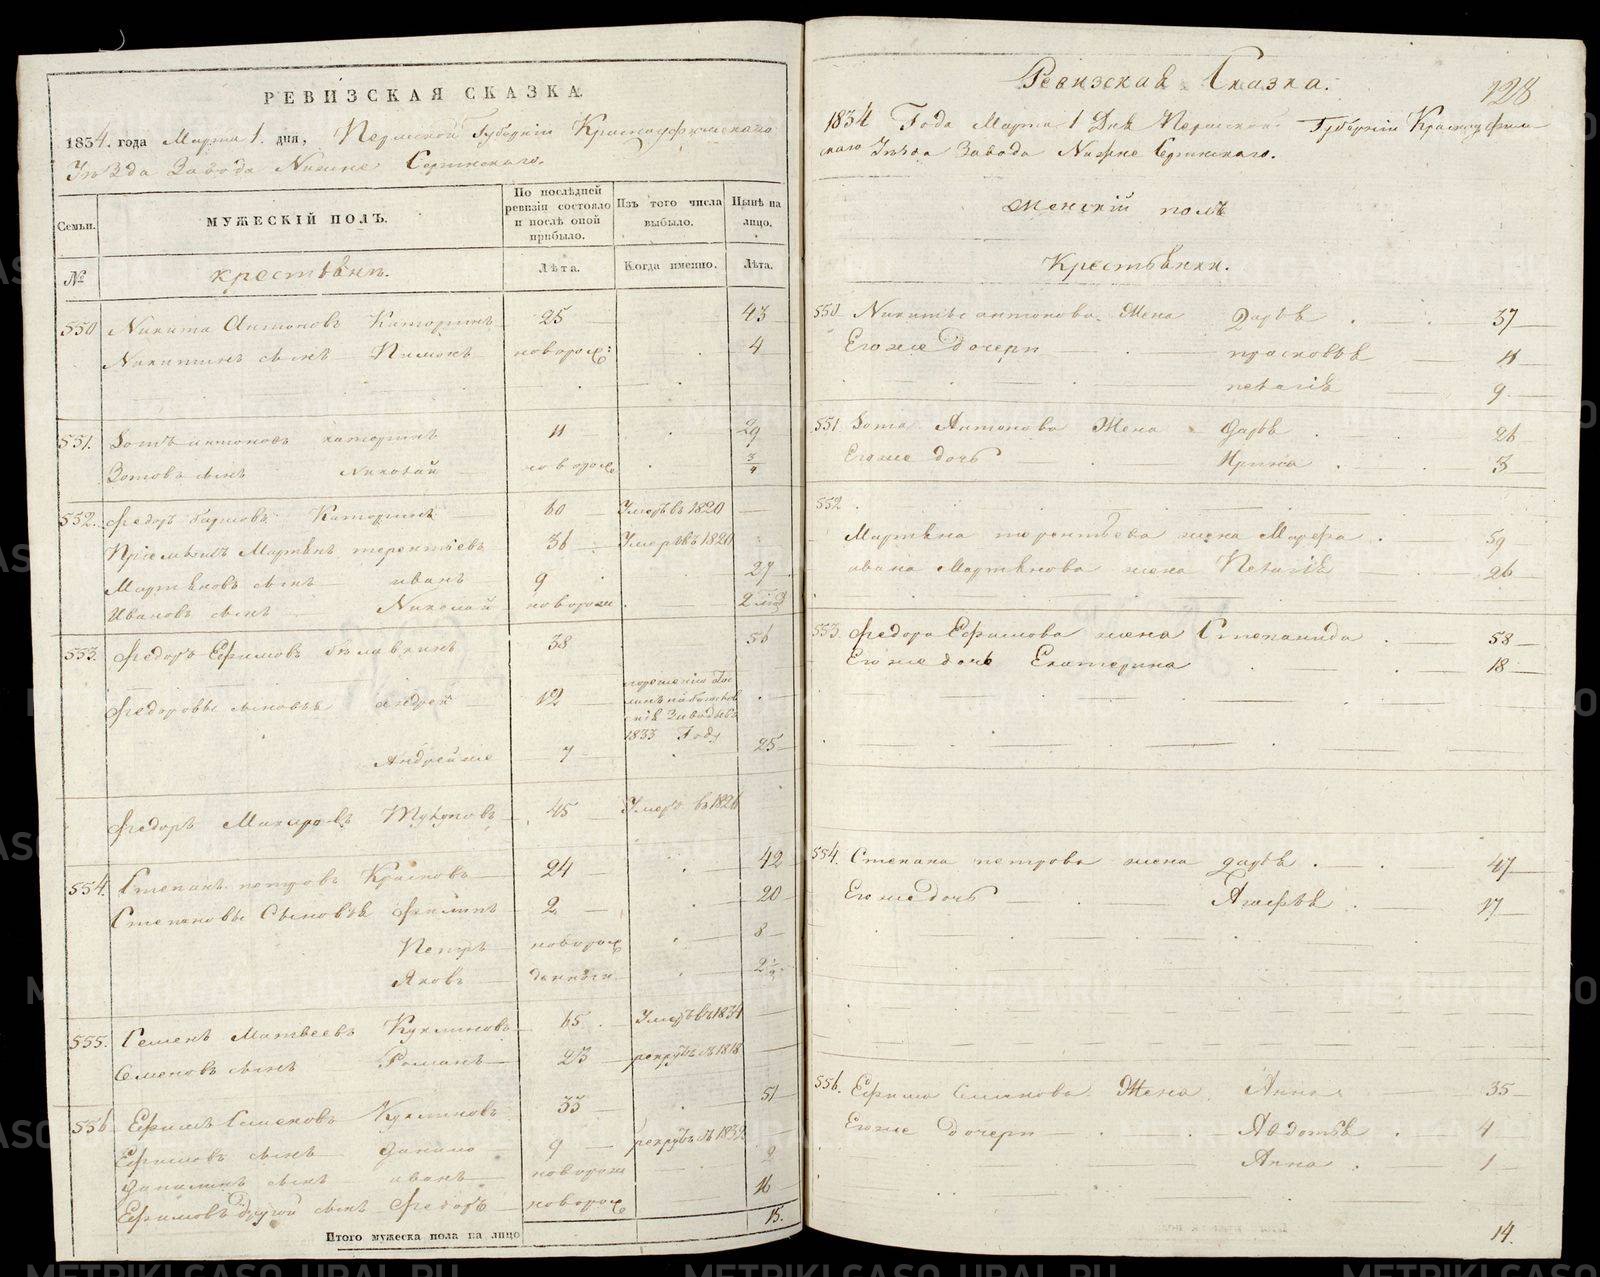 РЕВИЗСКАЯ СКАЗКА
1834. года Марта 1. дня, Пермской Губерніи Красноуфимскаго
Уѣзда Завода Нижне Сергинскаго.
Семьи.
МУЖЕСКІЙ ПОЛЪ.
По послѣдней ревизіи состояло и послѣ оной прибыло.
Изъ того числа выбыло.
Нынѣ на лицо.
№
крестьянъ.
Лѣта.
Когда именно.
Лѣта.
550 Никита Антоновъ 25 43
Никитинъ сынъ Пимонъ новорож: 4
551. Зотъ антоновъ 11 29
Зотовъ сынъ Николай новорож 3/4
552. Федоръ 60 Умеръ въ 1820
Пріемышъ Мартынъ терентьевъ 36 Умеръ въ 1820
Мартыновъ сынъ иванъ 9 27
Ивановъ сынъ Николай новорож 2
553. Федоръ Ефимовъ 38 56
Федоровы сыновья андрей 12 1833 Году
Андрей же 7 25
Федоръ 45 Умеръ въ 1826
554. Степанъ петровъ Красновъ 24 42
Степановы Сыновья Филипъ 2 20
Петръ новорож 8
Яковъ 2
555. Семенъ Матвеевъ Куклиновъ 65 Умеръ въ 1834
Семеновъ сынъ Романъ 23 рекрутъ въ 1818
556 Ефимъ Семеновъ Куклиновъ 33 51
Ефимовъ сынъ данило 9 рекрутъ въ 1832
данилинъ сынъ иванъ новорож 2
Ефимовъ другой сынъ Федоръ новорож 16
Итого мужеска пола на лицо 15.
Ревизская Сказка.
128
1834 Года Марта 1 Дня Пермской Губерніи Красноуфим-
скаго Уѣзда Завода Нижне Сергинскаго.
Женскій полъ
Крестьянки.
550 Никиты антонова Жена Дарья 37
Его же Дочери прасковья 11
пелагія 9
551 Зота Антонова Жена Дарья 26
Его же дочь Ирина 3
552.
Мартына терентьева жена Марфа 59
ивана Мартынова жена Пелагія 26
553. Федора Ефимова жена Степанида 58
Его же дочь Екатерина 18
554. Степана петрова жена дарья 47
Его же Дочь Агафья 17
556. Ефима Семенова Жена Анна 35
Его же дочери Авдотья 4
Анна 1
14.